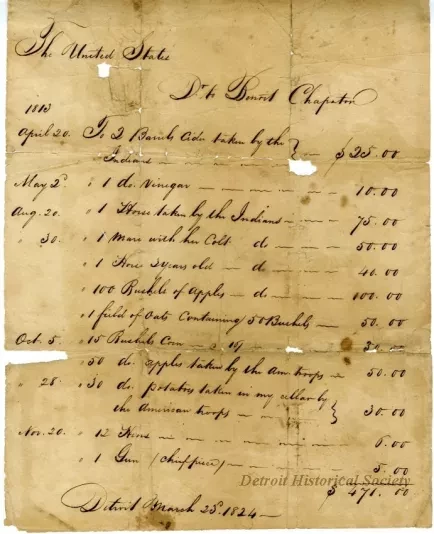 The United States
Dr. to Benoit Chapaton
1813
April 20. To 2 Barrels Cider taken by the
Indians — — — — $ 25.00
May 2d " 1 do. Vinegar — — — — 10.00
Aug. 20. " 1 Horse taken by the Indians — — 75.00
" 30. " 1 Mare with her Colt do — — — 50.00
" 1 Horse 2 years old — do — — — 40.00
" 100 Bushels of Apples — do — — — 100.00
" 1 field of Oats Containing 50 Bushels — 50.00
Oct. 5. " 15 Bushels Corn — — 30.00
" 50 do. apples taken by the Am troops — 50.00
" 28. " 30 do. potatoes taken in my cellar by
the American troops — — — 30.00
Nov. 20. " 12 — — — — 6.00
" 1 Gun (chief piece) — — — 5.00
Detroit Historical Society
$ 471.00
Detroit March 25. 1824 —